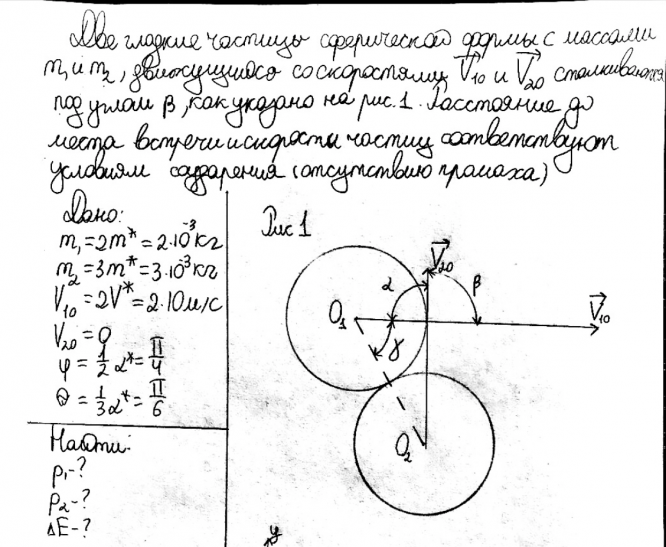 Две гладкие частицы сферической формы с массами
m₁ и m₂, движущиеся со скоростями V⃗₁₀ и V⃗₂₀ сталкиваются
под углом β, как указано на рис. 1. Расстояние до
места встречи и скорости частиц соответствуют
условиям соударения (отсутствию промаха)
Дано:
m₁ = 2m* = 2·10⁻³ кг
m₂ = 3m* = 3·10⁻³ кг
V₁₀ = 2V* = 2·10 м/с
V₂₀ = 0
φ = 1/2 α* = π/4
θ = 1/3 α* = π/6
Найти:
p₁-?
p₂-?
ΔE-?
Рис 1
V⃗₂₀
α
β
O₁
V⃗₁₀
γ
O₂
y